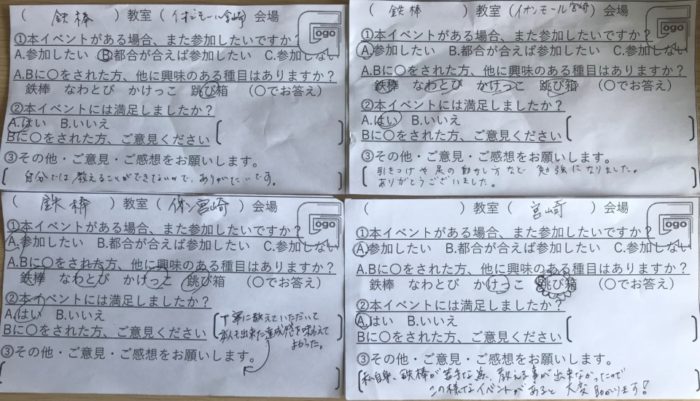 ( 鉄棒 ) 教室 ( イオンモール宮崎 ) 会場
Logo
①本イベントがある場合、また参加したいですか？
A.参加したい B.都合が合えば参加したい C.参加しない
A.Bに〇をされた方、他に興味のある種目はありますか？
鉄棒 なわとび かけっこ 跳び箱 (〇でお答え)
②本イベントには満足しましたか？
A.はい B.いいえ
Bに〇をされた方、ご意見ください
③その他・ご意見・ご感想をお願いします。
自分では教えることができないので、ありがたいです。
( 鉄棒 ) 教室 ( イオンモール宮崎 ) 会場
Logo
①本イベントがある場合、また参加したいですか？
A.参加したい B.都合が合えば参加したい C.参加しない
A.Bに〇をされた方、他に興味のある種目はありますか？
鉄棒 なわとび かけっこ 跳び箱 (〇でお答え)
②本イベントには満足しましたか？
A.はい B.いいえ
Bに〇をされた方、ご意見ください
③その他・ご意見・ご感想をお願いします。
引きつけや足の動かし方など勉強になりました。
ありがとうございました。
( 鉄棒 ) 教室 ( イオン宮崎 ) 会場
Logo
①本イベントがある場合、また参加したいですか？
A.参加したい B.都合が合えば参加したい C.参加しない
A.Bに〇をされた方、他に興味のある種目はありますか？
鉄棒 なわとび かけっこ 跳び箱 (〇でお答え)
②本イベントには満足しましたか？
A.はい B.いいえ
Bに〇をされた方、ご意見ください
丁寧に教えていただいて
出来た達成感を味わえて
よかった。
③その他・ご意見・ご感想をお願いします。
( ) 教室 ( 宮崎 ) 会場
Logo
①本イベントがある場合、また参加したいですか？
A.参加したい B.都合が合えば参加したい C.参加しない
A.Bに〇をされた方、他に興味のある種目はありますか？
鉄棒 なわとび かけっこ 跳び箱 (〇でお答え)
②本イベントには満足しましたか？
A.はい B.いいえ
Bに〇をされた方、ご意見ください
③その他・ご意見・ご感想をお願いします。
私自身、鉄棒が苦手な為、教える事が出来なかったので
この様なイベントがあると大変助かります!